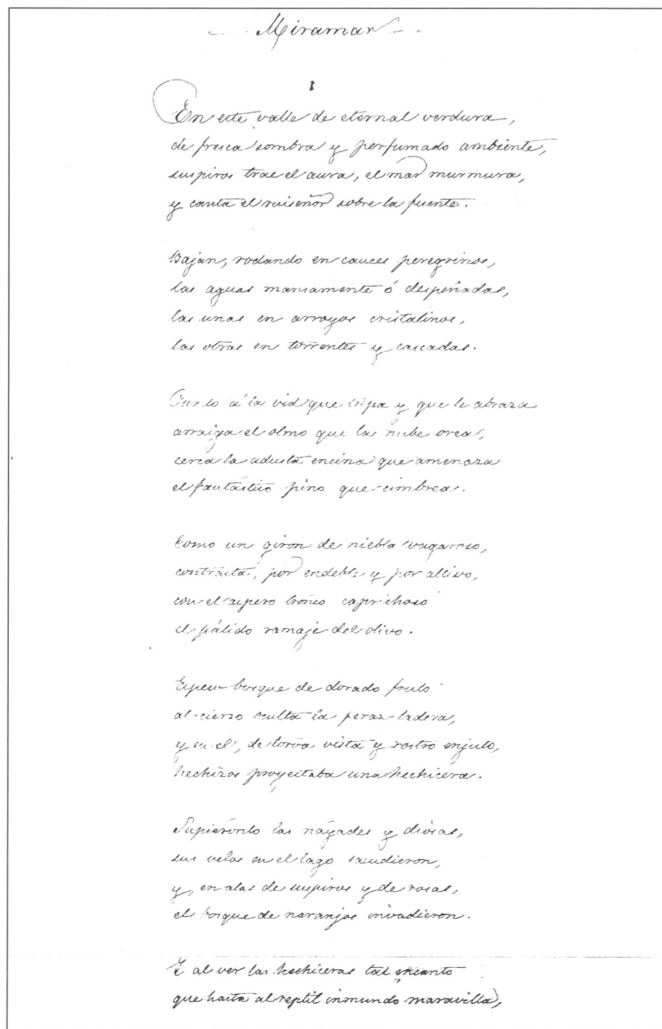 Miramar
I
En este valle de eternal verdura,
de fresca sombra y perfumado ambiente,
suspiros trae el aura, el mar murmura,
y canta el ruiseñor sobre la fuente.
Bajan, rodando en cauces peregrinos,
las aguas mansamente ó despeñadas,
las unas en arroyos cristalinos,
las otras en torrentes y cascadas.
Junto á la vid que trepa y que le abraza
arraiga el olmo que las nube orea,
cerca la adusta encina que amenaza
el fantástico pino que cimbrea.
Como un giron de niebla vagaroso,
contrasta, por endeble y por altivo,
con el aspero tronco caprichoso
el pálido ramaje del olivo.
bosque de dorado fruto
al cierzo oculta la feraz ladera,
y en el, de torva vista y rostro enjuto,
hechizos proyectaba una hechicera.
Supiéronlo las náyades y diosas,
sus velos en el lago sacudieron,
y, en alas de suspiros y de rosas,
el bosque de naranjos invadieron.
Y al ver las hechiceras tal encanto
que hasta al reptil inmundo maravilla,